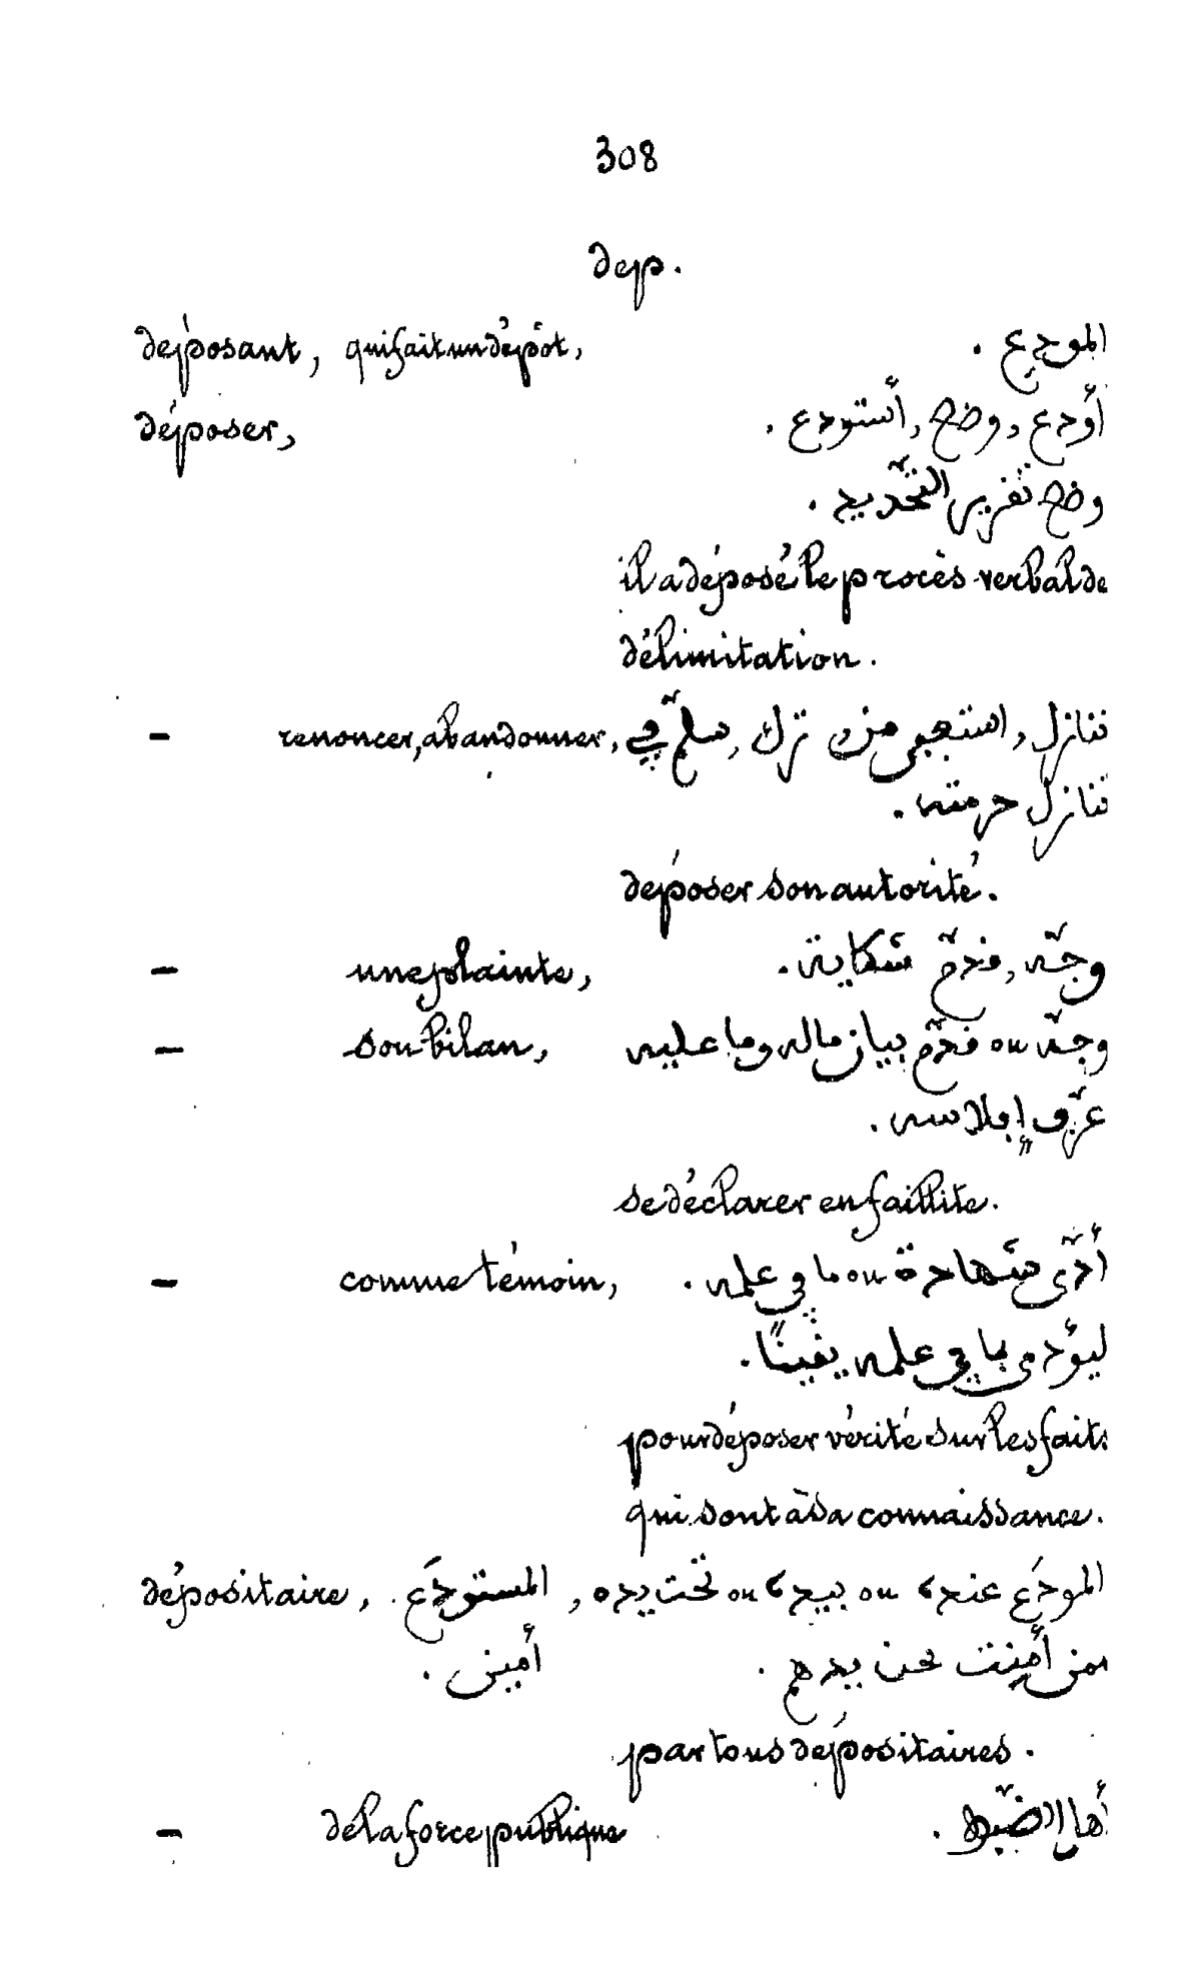 308
dép.
déposant, qui fait un dépôt, المودِع.
déposer, أودع, وضع, أستودع,
وضع تقرير التّحديد.
il a déposé le procès verbal de
délimitation.
— renoncer, abandonner, تنازل, استعفى من, ترك, سلّم في
تنازل حرمته.
déposer son autorité.
— une plainte, وجّه, قدّم شكاية.
— son bilan, وجّه ou قدّم بيان ماله وما عليه
عرّف إفلاسه.
se déclarer en faillite.
— comme témoin, أدّى شهادة ou ما في علمه.
ليؤدى بما في علمه يقينًا.
pour déposer vérité sur les faits
qui sont à sa connaissance.
dépositaire, المستودَع. المودَع عنده ou بيده ou تحت يده,
أمين. ممن أمنت تحت يدهم.
par tous dépositaires.
— de la force publique أهل الضّبط.